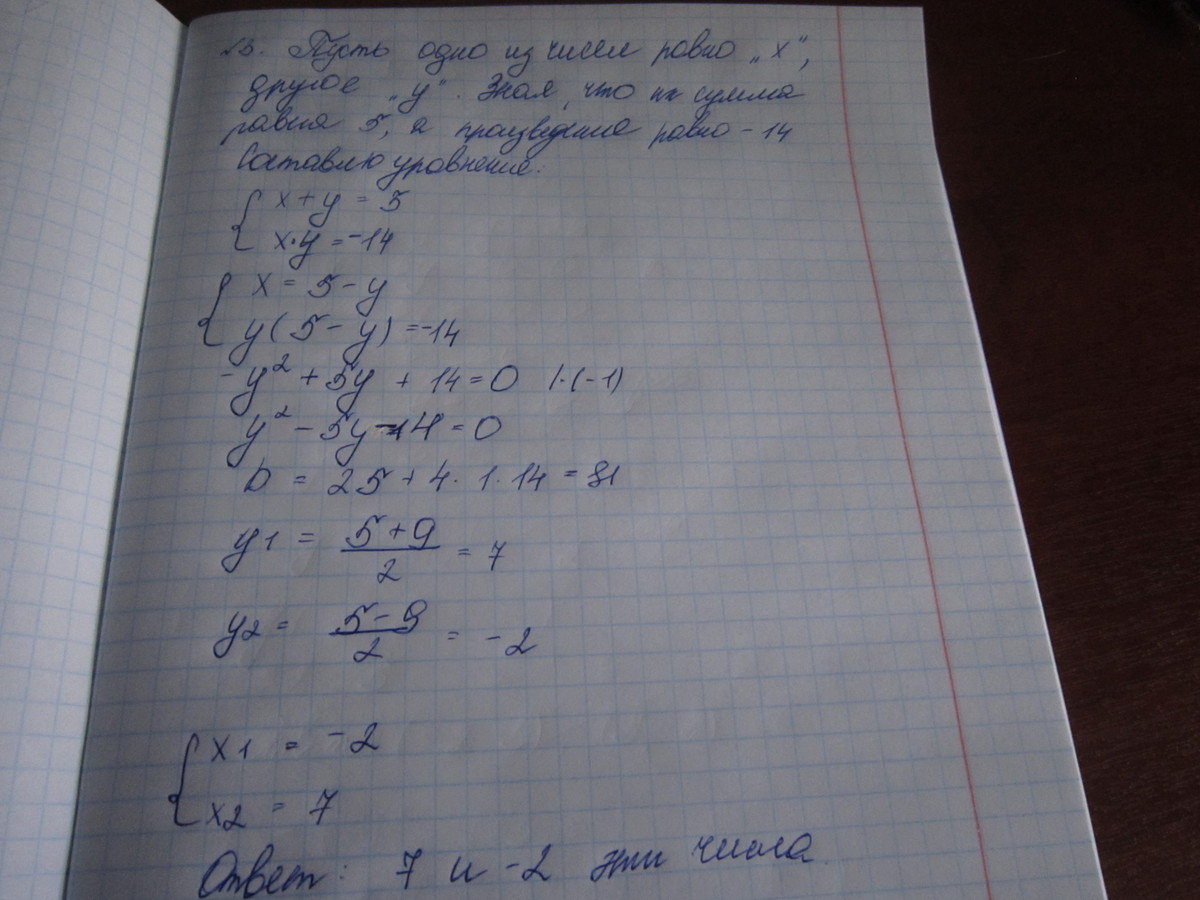 №3. Пусть одно из чисел равно „x“,
другое „y“. Зная, что их сумма
равна 5, а произведение равно -14
Составлю уравнение:
x + y = 5
x·y = -14
x = 5 - y
y(5 - y) = -14
-y² + 5y + 14 = 0 |·(-1)
y² - 5y - 14 = 0
D = 25 + 4·1·14 = 81
y1 = (5+9)/2 = 7
y2 = (5-9)/2 = -2
x1 = -2
x2 = 7
Ответ: 7 и -2 эти числа